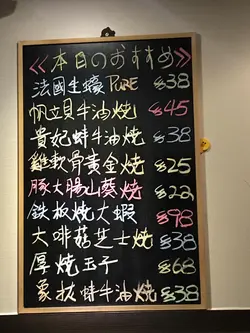 《本日のおすすめ》
法國生蠔 PURE $38
帆立貝牛油燒 $45
貴妃蚌牛油燒 $38
雞軟骨黃金燒 $25
豚大腸山葵燒 $22
鉄板燒大蝦 $98
大啡菇芝士燒 $38
厚燒玉子 $68
象拔蚌牛油燒 $38